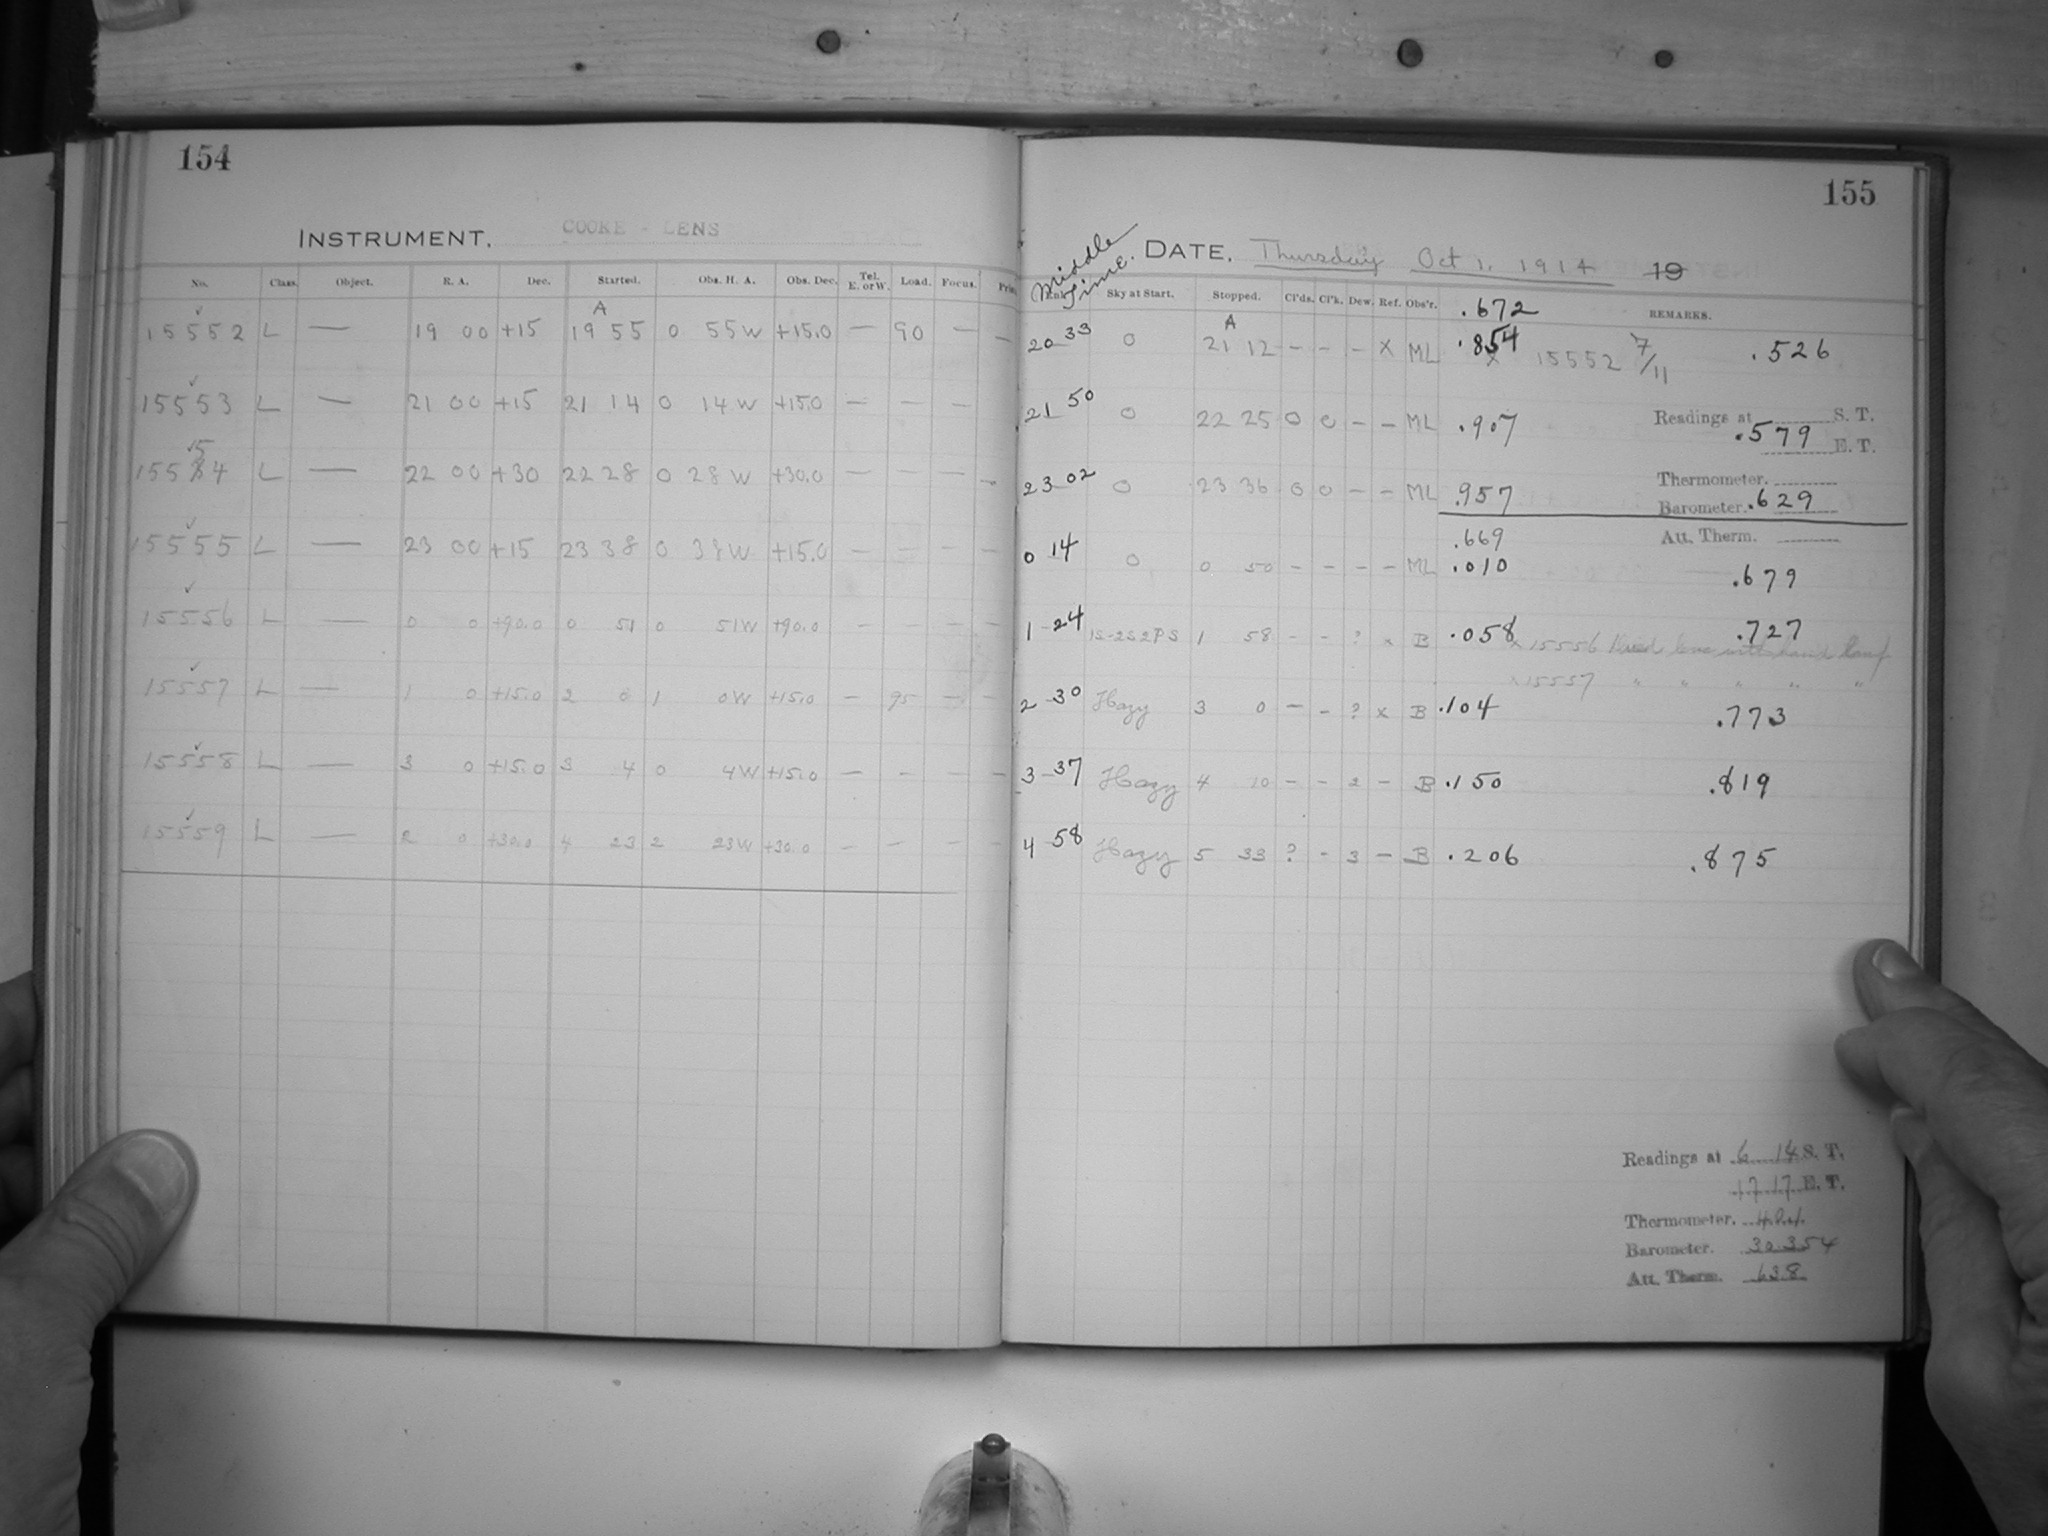 154
INSTRUMENT. COOKE - LENS
No. Class. Object. R. A. Dec. Started. Obs. H. A. Obs. Dec. Tel. E. or W. Load. Focus.
A
15552 L — 19 00 +15 19 55 0 55W +15.0 — 90 — —
15553 L — 21 00 +15 21 14 0 14W +15.0 — — —
5
15534 L — 22 00 +30 22 28 0 28W +30.0 — — — —
15555 L — 23 00 +15 23 38 0 38W +15.0 — — — —
15556 L — 0 0 +90.0 0 51 0 51W +90.0 — — — —
15557 L — 1 0 +15.0 2 0 1 0W +15.0 — 95 — —
15558 L — 3 0 +15.0 3 4 0 4W +15.0 — — — —
15559 L — 2 0 +30.0 4 23 2 23W +30.0 — — — —
155
Middle Time. DATE. Thursday Oct 1, 1914 19
Sky at Start. Stopped. Cl'ds. Cl'k. Dew. Ref. Obs'r. .672 REMARKS.
A
20 33 0 21 12 — — — X ML .854 x 15552 7/11 .526
21 50 0 22 25 0 0 — — ML .907 Readings at S. T.
.579 E. T.
23 02 0 23 36 0 0 — — ML .957 Thermometer.
Barometer. .629
.669 Att. Therm.
0 14 0 0 50 — — — — ML .010 .679
1-24 1S-2S2PS 1 58 — — ? x B .058 .727
x 15556 lens with hand lamp
x 15557 " " " " "
2-30 Hazy 3 0 — — ? x B .104 .773
3-37 Hazy 4 10 — — 2 — B .150 .819
4-58 Hazy 5 33 ? - 3 — B .206 .875
Readings at 6 14 S. T.
17 17 E. T.
Thermometer.
Barometer. 30.354
Att. Therm. 63.8